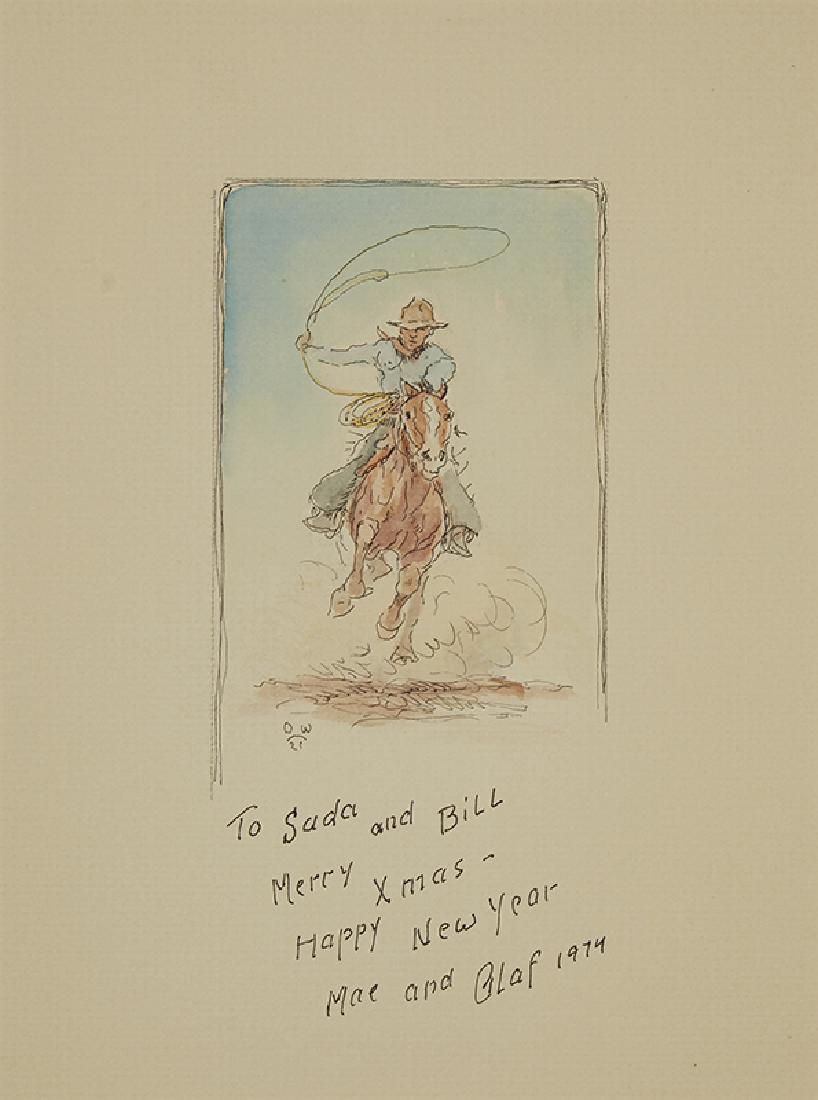 O W
21
To Sada and Bill
Merry Xmas-
Happy New Year
Mae and Olaf 1974